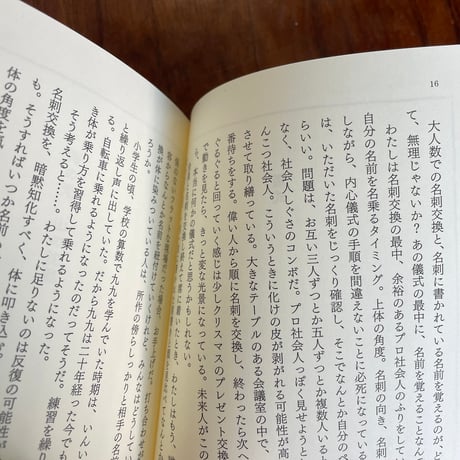 16
大人数での名刺交換と、名刺に書かれている名前を覚えるのが、
て、無理じゃないか？あの儀式の最中に、名前を覚えることなん
自分の名前を名乗るタイミング。上体の角度。名刺の向き、名
わたしは名刺交換の最中、余裕のあるプロ社会人のふりを
しながら、内心儀式の手順を間違えないことに必死になって
は、いただいた名刺をじっくり確認し、そこでなんとか自分の
らいい。問題は、お互い三人ずつとか五人ずつとか複数人いる
なく、社会人しぐさのコンボだ。プロ社会人っぽく見せようと
んこつ社会人。こういうときに化けの皮が剥がれる可能性が高
させて取り繕っている。大きなテーブルのある会議室の中で、
番待ちをする。偉い人から順に名刺を交換し、終わったら次へ
ぐるぐると回っていく感じは少しクリスマスのプレゼント交換
で動きを見たら、きっと変な光景になっている。未来人がこの
ら、本当に何かの儀式だと思うかもしれない。
名刺交換を終えて席に着いたとき、わたしはもう、
お手上げだ。打ち合わせ
換が体に染みついている人は、所作の傍らしっかりと相手の名
ろうか。
小学生の頃、学校の算数で九九を学んでいた時期は、いんい
と繰り返し声に出していた。だから九九は二十年経った今でも
る。自転車に乗れるようになったのだってそうだ。練習を繰り
き体が乗り方を習得して乗れるようになった。
そう考えると……。わたしに足りないのは反復の可能性が
名刺交換を、暗黙知化すべく、体に叩き込む
も。そうすればいつか名前
体の角度を